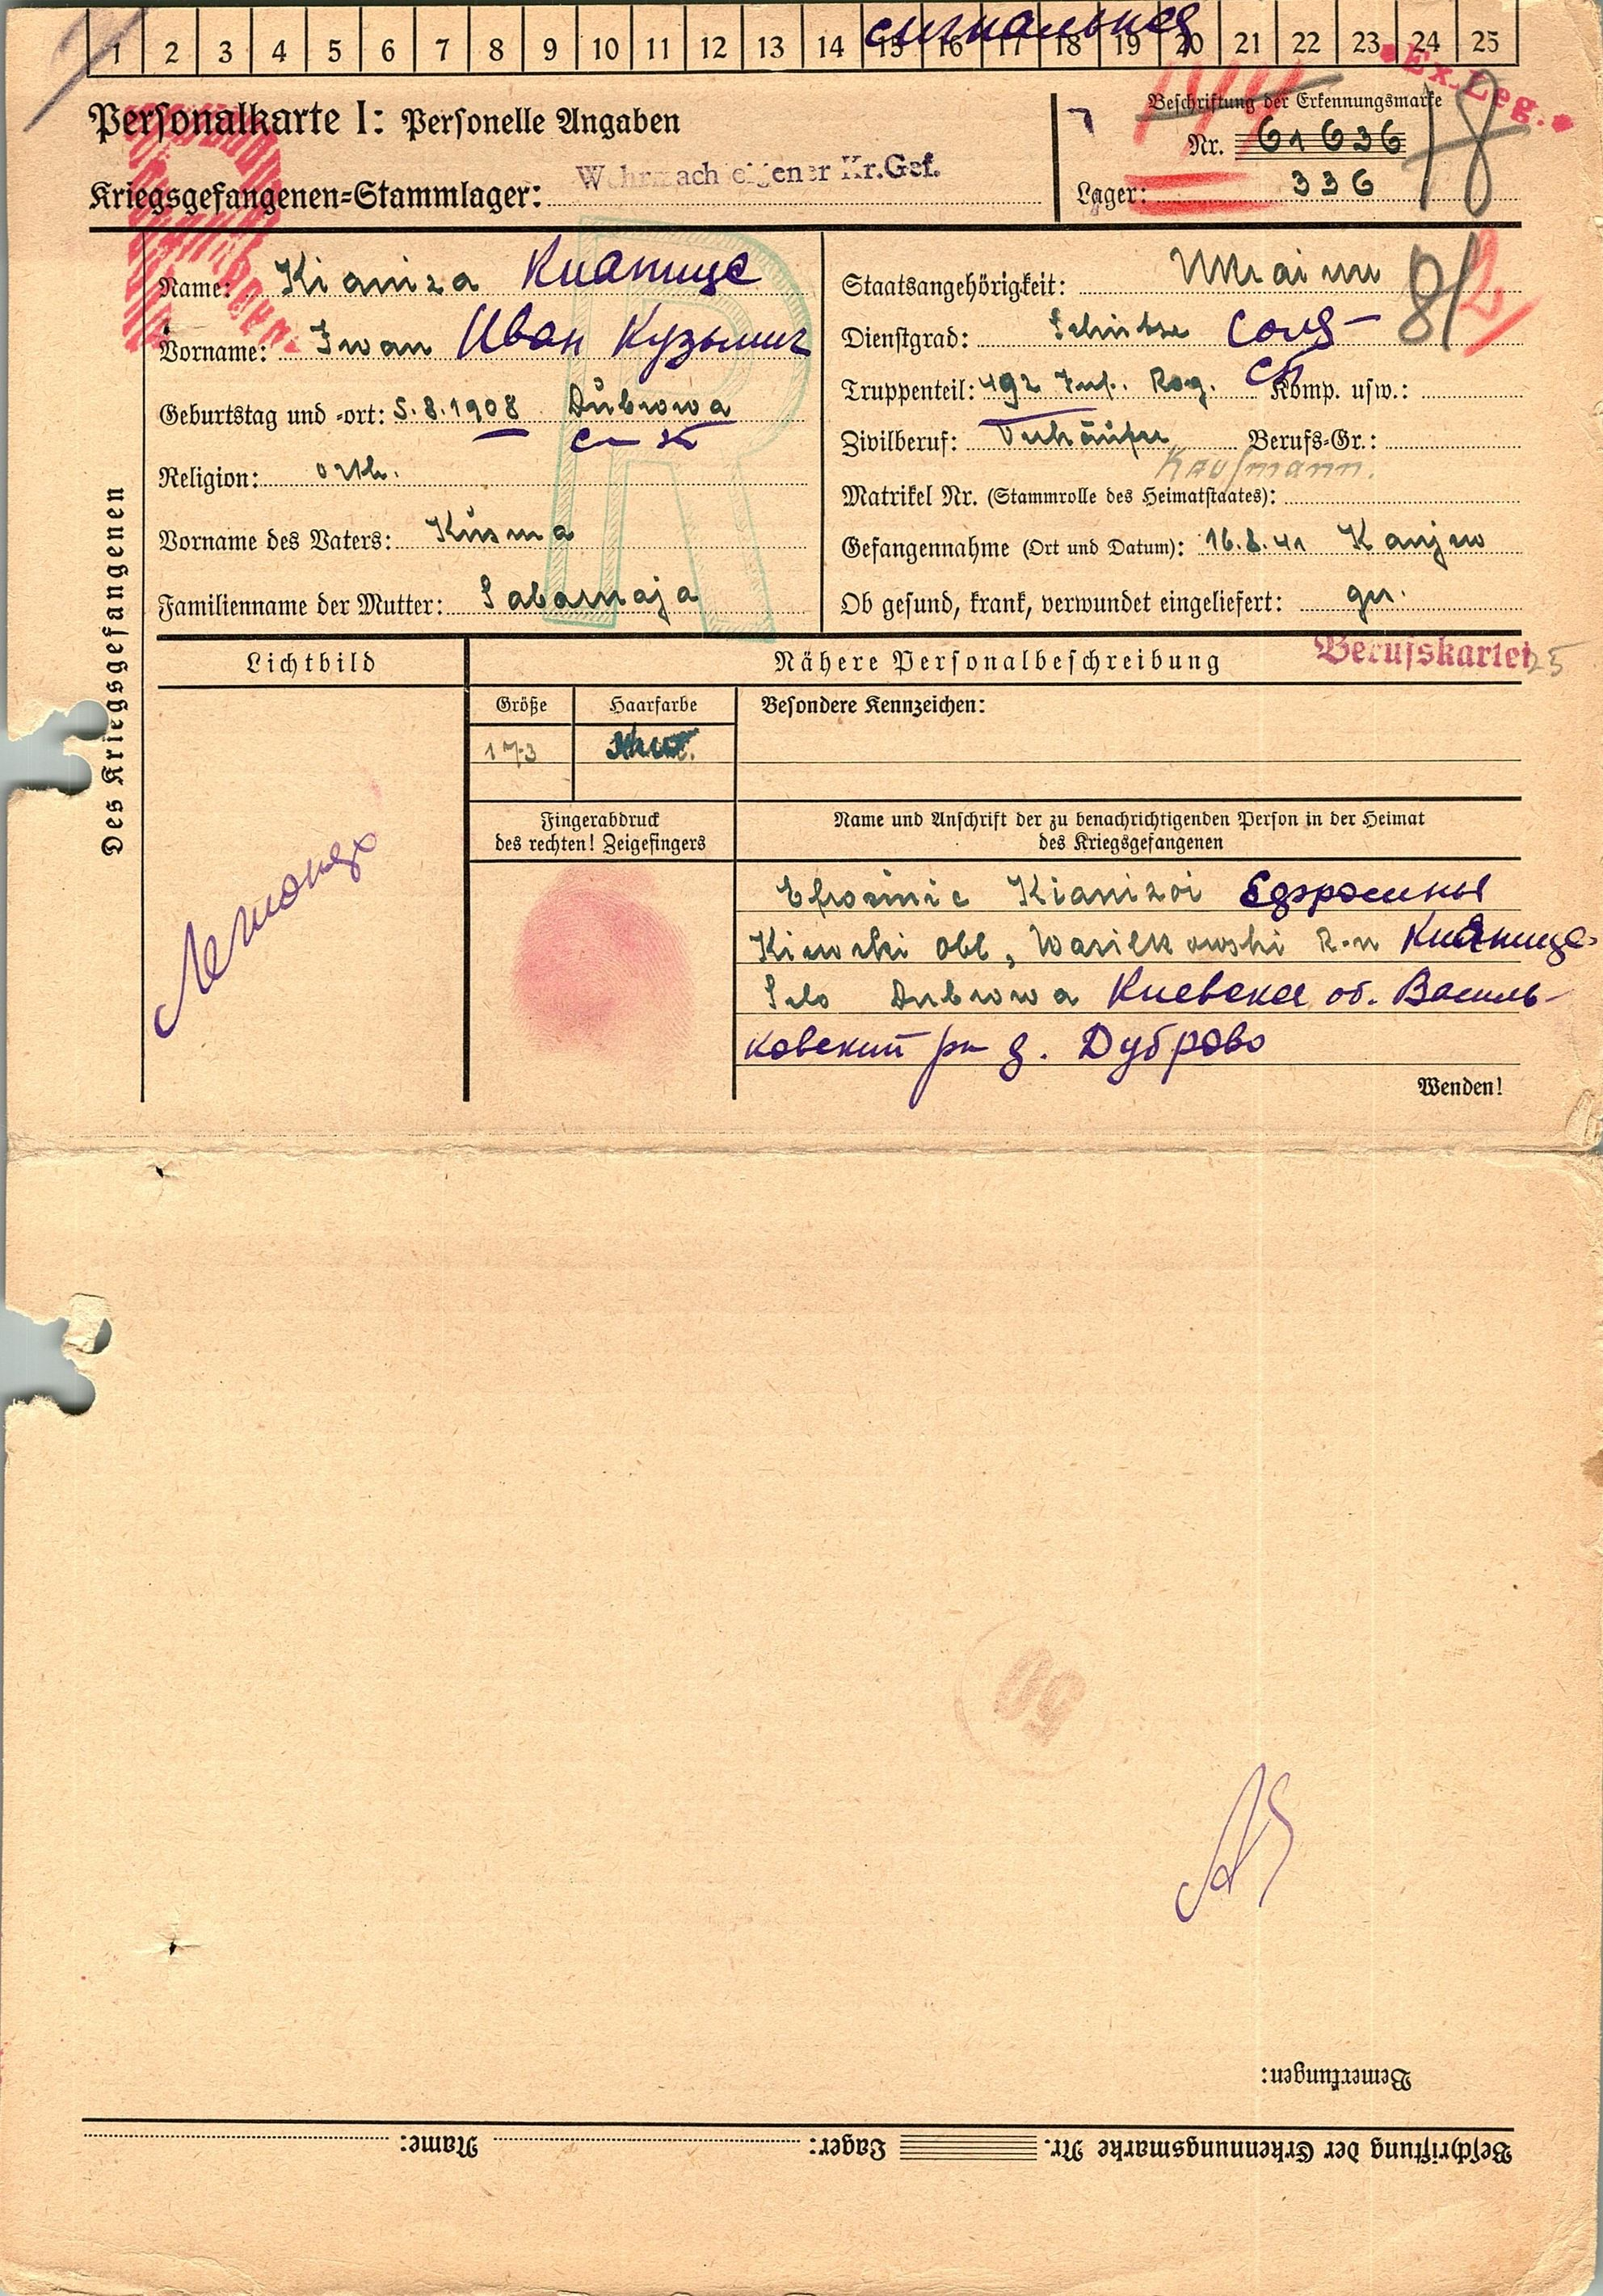 1 2 3 4 5 6 7 8 9 10 11 12 13 14 15 16 17 18 19 20 21 22 23 24 25
Ex. Leg.
Personalkarte I: Personelle Angaben
Beschriftung der Erkennungsmarke
Nr. 61636
Kriegsgefangenen-Stammlager: Wehrmachteigener Kr.Gef.
Lager: 336
Des Kriegsgefangenen
Name: Kianiza Кианице
Vorname: Iwan Иван Кузьмич
Geburtstag und -ort: 5.8.1908 Dubrowa
Religion: orth.
Vorname des Vaters: Kusma
Familienname der Mutter: Sabarnaja
Staatsangehörigkeit: Ukrainer
8/2
Dienstgrad: Schütze Солд-
Truppenteil: 492 Inf. Reg. Komp. usw.:
Zivilberuf: Verkäufer Berufs-Gr.:
Kaufmann.
Matrikel Nr. (Stammrolle des Heimatstaates):
Gefangennahme (Ort und Datum): 16.8.41 Kanjew
Ob gesund, krank, verwundet eingeliefert: ges.
Berufskartei
25
Lichtbild
Nähere Personalbeschreibung
Größe
Haarfarbe
Besondere Kennzeichen:
173
Fingerabdruck
des rechten! Zeigefingers
Name und Anschrift der zu benachrichtigenden Person in der Heimat
des Kriegsgefangenen
Efrosinie Kianizoi Ефросинья
Kiewski Obl, Wasilkowski R-n Кианице-
Selo Dubrowa Киевская об. Василь-
ковский рн д. Дуброво
Wenden!
50
Bemerkungen:
Beschriftung der Erkennungsmarke Nr. Lager: Name: